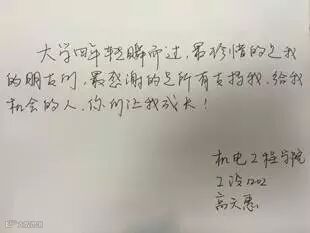 大学四年转瞬而过，最珍惜的是我
的朋友们，最感谢的是所有支持我，给我
机会的人，你们让我成长！
机电工程学院
工设1202
高天惠